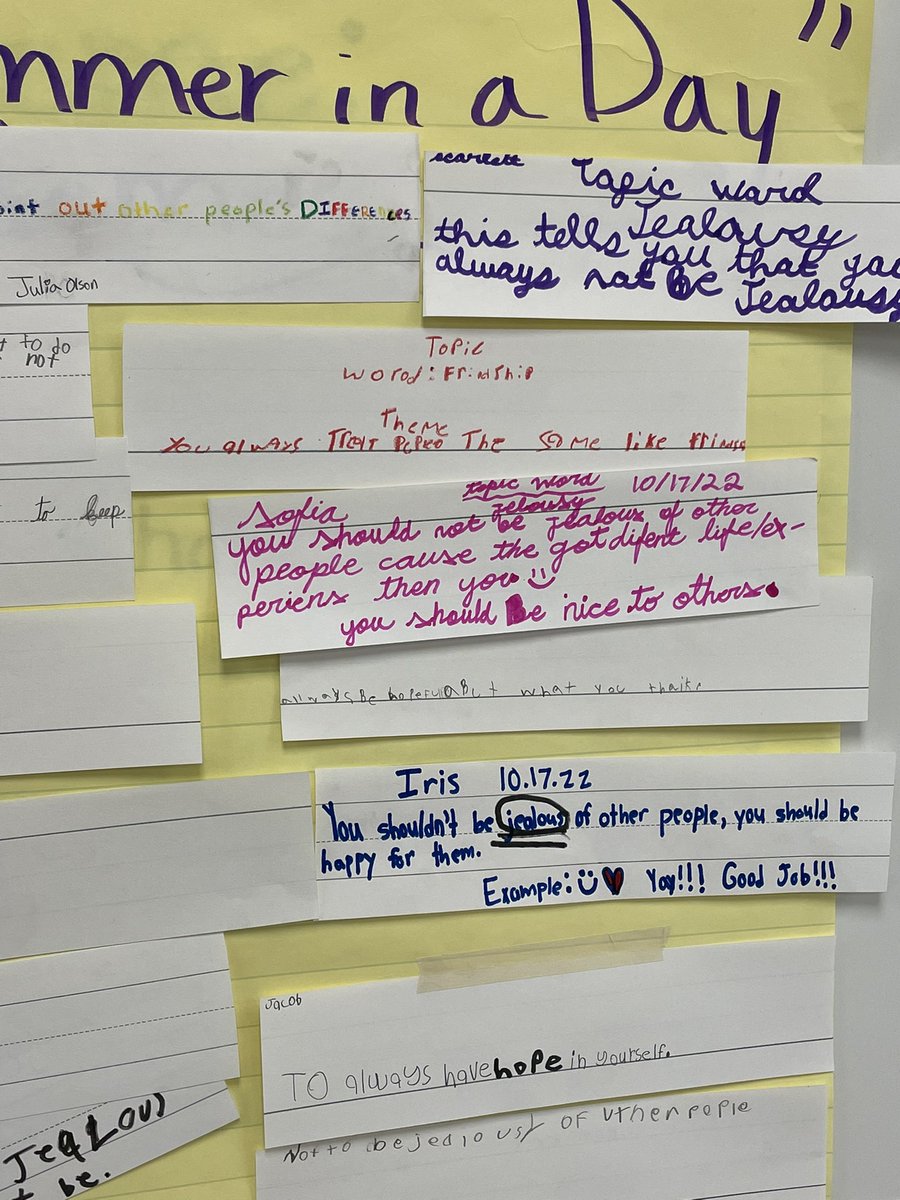 mmer in a Day"
out other people's DIFFERENCES
Julia Olson
Scarlett
Topic word
Jealousy
this tells you that you
always not be Jealousy
to do
not
Topic
Word: Frindhip
Theme
You always Treat Pepeo The Same like Frinds
to keep
Sofia topic word 10/17/22
jelousy
you should not be jealous of other
people cause the got difent life/ex-
periens then you
you should be nice to others.
allways Be hopefull aBut what you
Iris 10.17.22
You shouldn't be jealous of other people, you should be
happy for them.
Example: Yay!!! Good Job!!!
Jacob
TO always have hope in yourself.
Jealous
be.
Not to be jedloust of uther pople